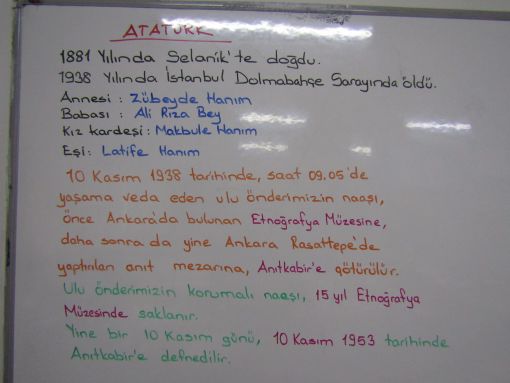 ATATÜRK
1881 Yılında Selanik'te doğdu.
1938 Yılında İstanbul Dolmabahçe Sarayında öldü.
Annesi : Zübeyde Hanım
Babası : Ali Rıza Bey
Kız kardeşi : Makbule Hanım
Eşi : Latife Hanım
10 Kasım 1938 tarihinde, saat 09.05'de
yaşama veda eden ulu önderimizin naaşı,
önce Ankara'da bulunan Etnoğrafya Müzesine,
daha sonra da yine Ankara Rasattepe'de
yaptırılan anıt mezarına, Anıtkabir'e götürülür.
Ulu önderimizin korumalı naaşı, 15 yıl Etnoğrafya
Müzesinde saklanır.
Yine bir 10 Kasım günü, 10 Kasım 1953 tarihinde
Anıtkabir'e defnedilir.